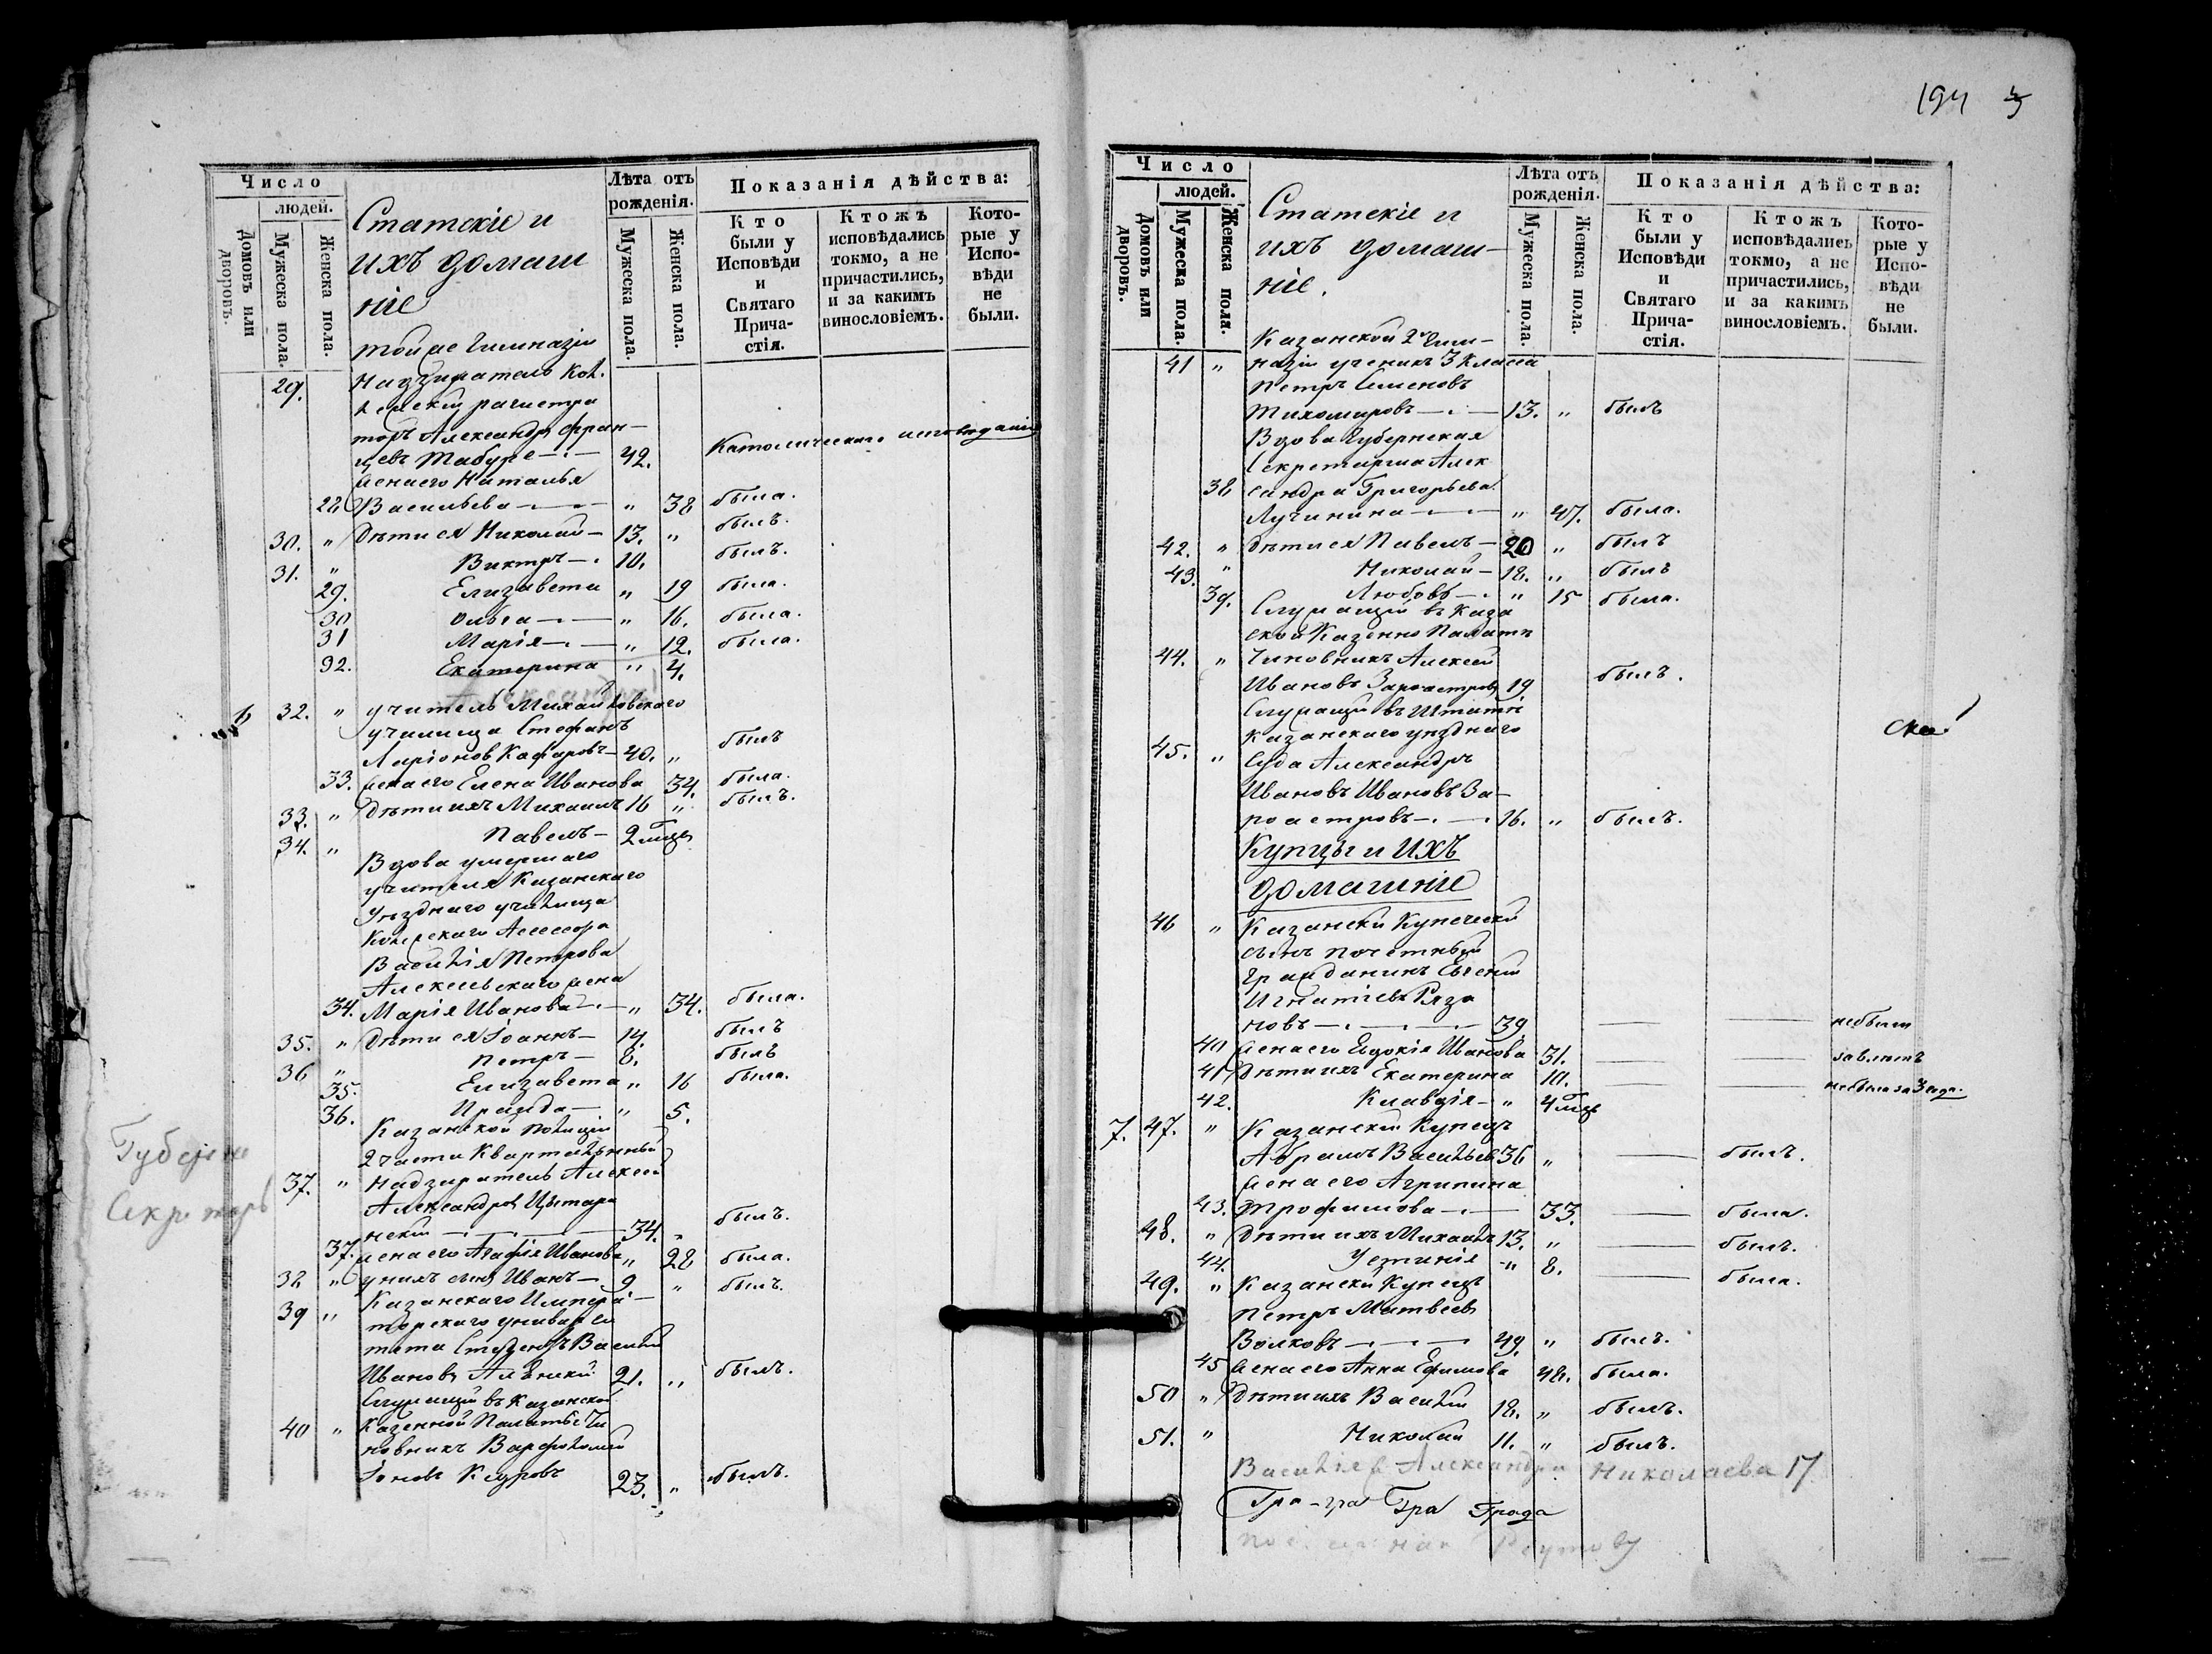 Число
людей.
Домовъ или дворовъ.
Мужеска пола.
Женска пола.
Статскіе и
ихъ домаш
ніе
Лѣта отъ
рожденія.
Мужеска пола.
Женска пола.
Показанія дѣйства:
Кто
были у
Исповѣди
и
Святаго
Прича-
стія.
Ктожъ
исповѣдались
токмо, а не
причастились,
и за какимъ
винословіемъ.
Кото-
рые у
Испо-
вѣди
не
были.
тойже Гимназіи
29. Надзиратель Кол.
лежскій регистра
торъ Александръ Фран-
цевъ Табуре 42. Католическаго исповѣданія
жена его Наталья
28 Васильева " 38 была.
30. " Дѣти ея Николай 13. " былъ.
31. " Викторъ 10. былъ.
29. Елизавета " 19 была.
30 Ольга " 16. была.
31 Марія " 12. была.
32. Екатерина " 4.
Александра
6 32. " учитель Михайловскаго
училища Стефанъ
Ларіоновъ Кафаровъ 40. " былъ
33. жена его Елена Иванова 34. была.
33. " Дѣти ихъ Михаилъ 16 " былъ.
34. " Павелъ 2 мѣс
Вдова умершаго
учителя Казанскаго
Уѣзднаго училища
Колежскаго Асессора
Василія Петрова
Алексеевскаго жена
34. Марія Иванова " 34. была.
35. " Дѣти ея Іоаннъ 14. былъ
36 " Петръ 8. былъ
35. Елизавета " 16 была.
36. Ираида " 5.
Казанской Полиціи
2 части Квартальный
37. " Надзиратель Алексей
Александровъ
нскій 34. " былъ.
Губерн
Секретарь
37. жена его Агафія Иванова " 28 была.
38 " у нихъ сынъ Иванъ 9 " былъ.
Казанскаго Импера
39 " торскаго универси
тета Студентъ Василій
Ивановъ 21. " былъ.
Служащій въ Казанской
40 " Казенной Палатѣ Чи
новникъ Варфоломей
Іоновъ 23. " былъ.
194 5
Число
людей.
Домовъ или дворовъ.
Мужеска пола.
Женска пола.
Статскіе и
ихъ домаш-
ніе.
Лѣта отъ
рожденія.
Мужеска пола.
Женска пола.
Показанія дѣйства:
Кто
были у
Исповѣди
и
Святаго
Прича-
стія.
Ктожъ
исповѣдались
токмо, а не
причастились,
и за какимъ
винословіемъ.
Кото-
рые у
Испо-
вѣди
не
были.
Казанской 2й Гим-
41 " назіи ученикъ 3 класса
Петръ Семеновъ
Тихомировъ 13. " былъ
Вдова Губернская
Секретарша Алек
38 сандра Григорьева
Лучинина " 47. была.
42. " Дѣти ея Павелъ 20 " былъ
43. " Николай 18. " былъ
39. Любовь " 15 была.
Служащій въ Каза
ской Казенно Палатѣ
44. " Чиновникъ Алексей
Ивановъ Зороастровъ 19 былъ.
Служащій въ Штатѣ
Казанскаго уѣзднаго
45. " Суда Александръ
Ивановъ Ивановъ За-
роастровъ 16. " былъ.
Купцы и ихъ
домашніе
46 " Казанскій Купеческій
сынъ почетный
Гражданинъ Евгеній
Игнатіевъ Ряза
новъ 39 небылъ
40 жена его Евдокія Иванова 31.
41 Дѣти ихъ Екатерина 10.
42. Клавдія " 4 мѣс
7. 47. " Казанскій Купецъ
Абрамъ Васильевъ 36 " былъ.
жена его Агрипина
43. Трофимова 33. была.
48. " Дѣти ихъ Михаилъ 13. " былъ.
44. Устинія " 8. была.
49. " Казанскій Купецъ
Петръ Матвеевъ
Волковъ 49. " былъ.
45 жена его Анна Ефимова 48. была.
50 " Дѣти ихъ Василій 18. " былъ.
51. " Николай 11. " былъ.
Василія ж Александра Николаева 17
Гра-гра Гра Града